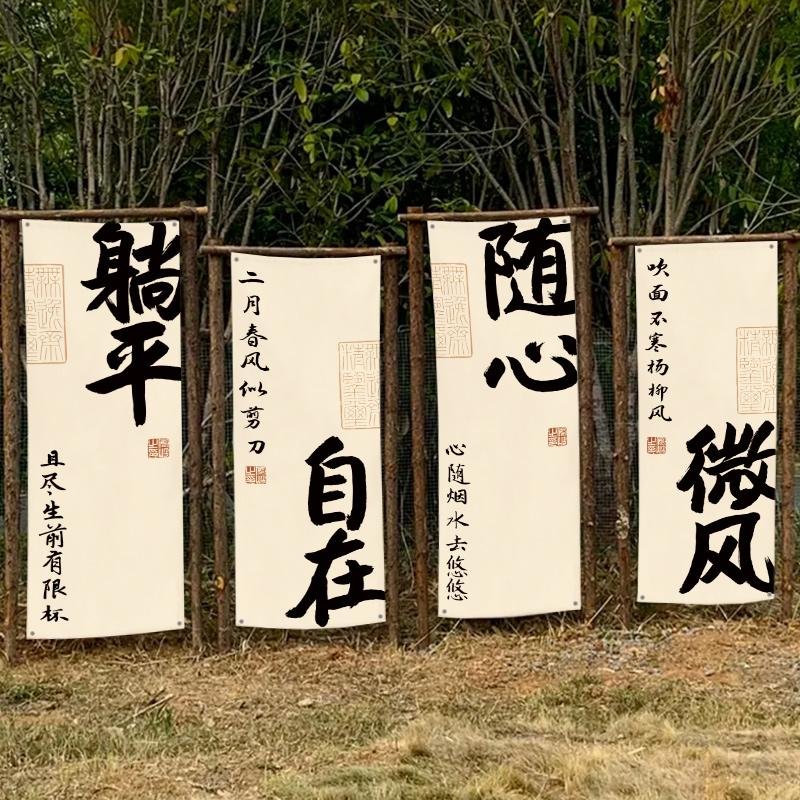 躺平
且尽生前有限杯
二月春风似剪刀
自在
随心
心随烟水去悠悠
吹面不寒杨柳风
微风